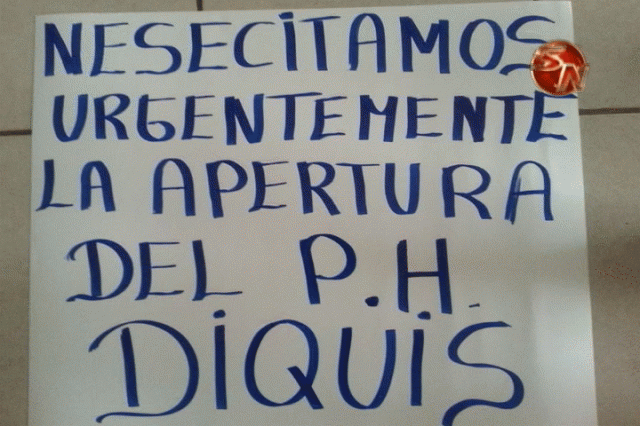 NESECITAMOS
URGENTEMENTE
LA APERTURA
DEL P.H.
DIQUIS